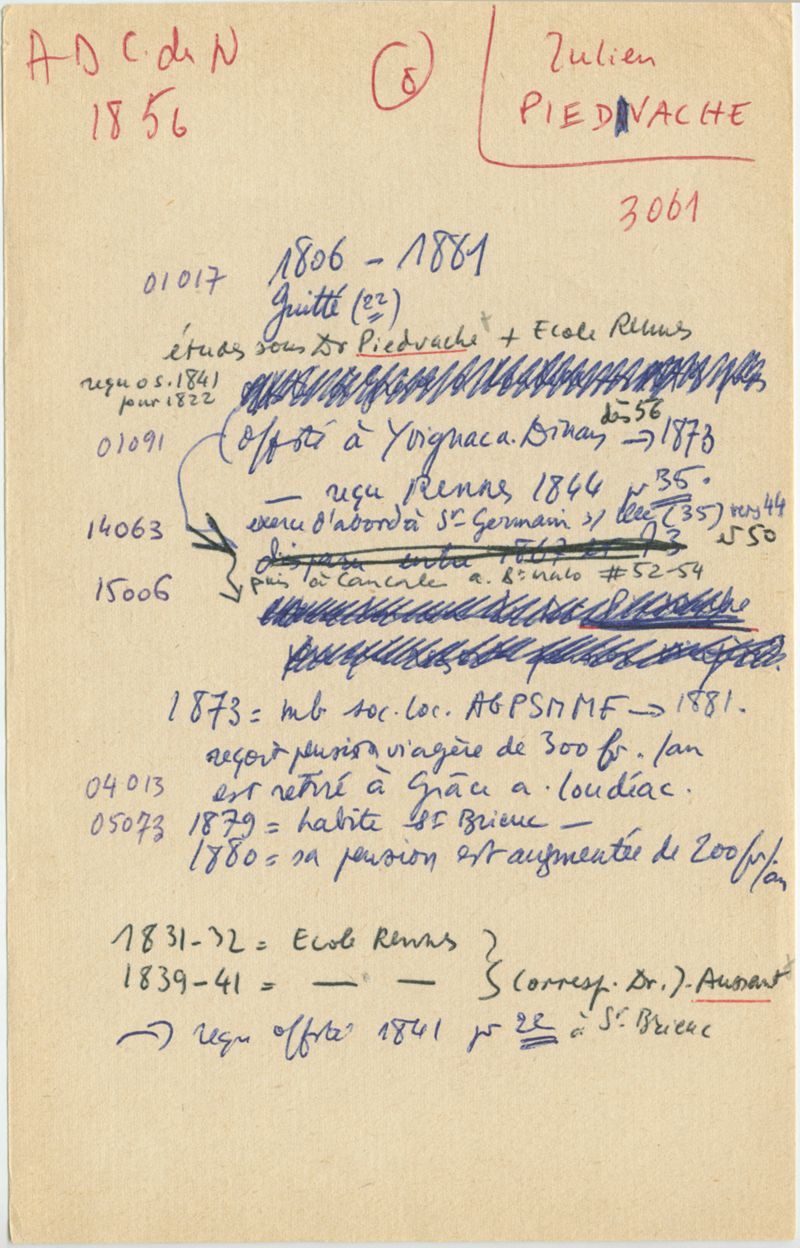 A D C. du N
1856
6
Julien
PIEDVACHE
3061
01017 1806 - 1881
Guitté (22)
études sous Dr Piedvache x + Ecole Rennes
reçu o s. 1841
pour 1822
01091 offté à Yvignac a. Dinan dès 56 → 1873
— reçu Rennes 1844 pr 35.
14063 exerce d'abord à St Germain s/ Ille (35) vers 44 et 50
disparu entre 1867 et 73
15006 puis à Cancale a. St Malo # 52-54
1873 = mb soc. loc. AGPSMMF → 1881.
reçoit pension viagère de 300 fr. /an
04013 est retiré à Grâce a. Loudéac.
05073 1879 = habite St Brieuc —
1880 = sa pension est augmentée de 200 fr/an
1831-32 = Ecole Rennes }
1839-41 = — — } (corresp. Dr. J. Aussant x
→ reçu offté 1841 pr 22 à St Brieuc